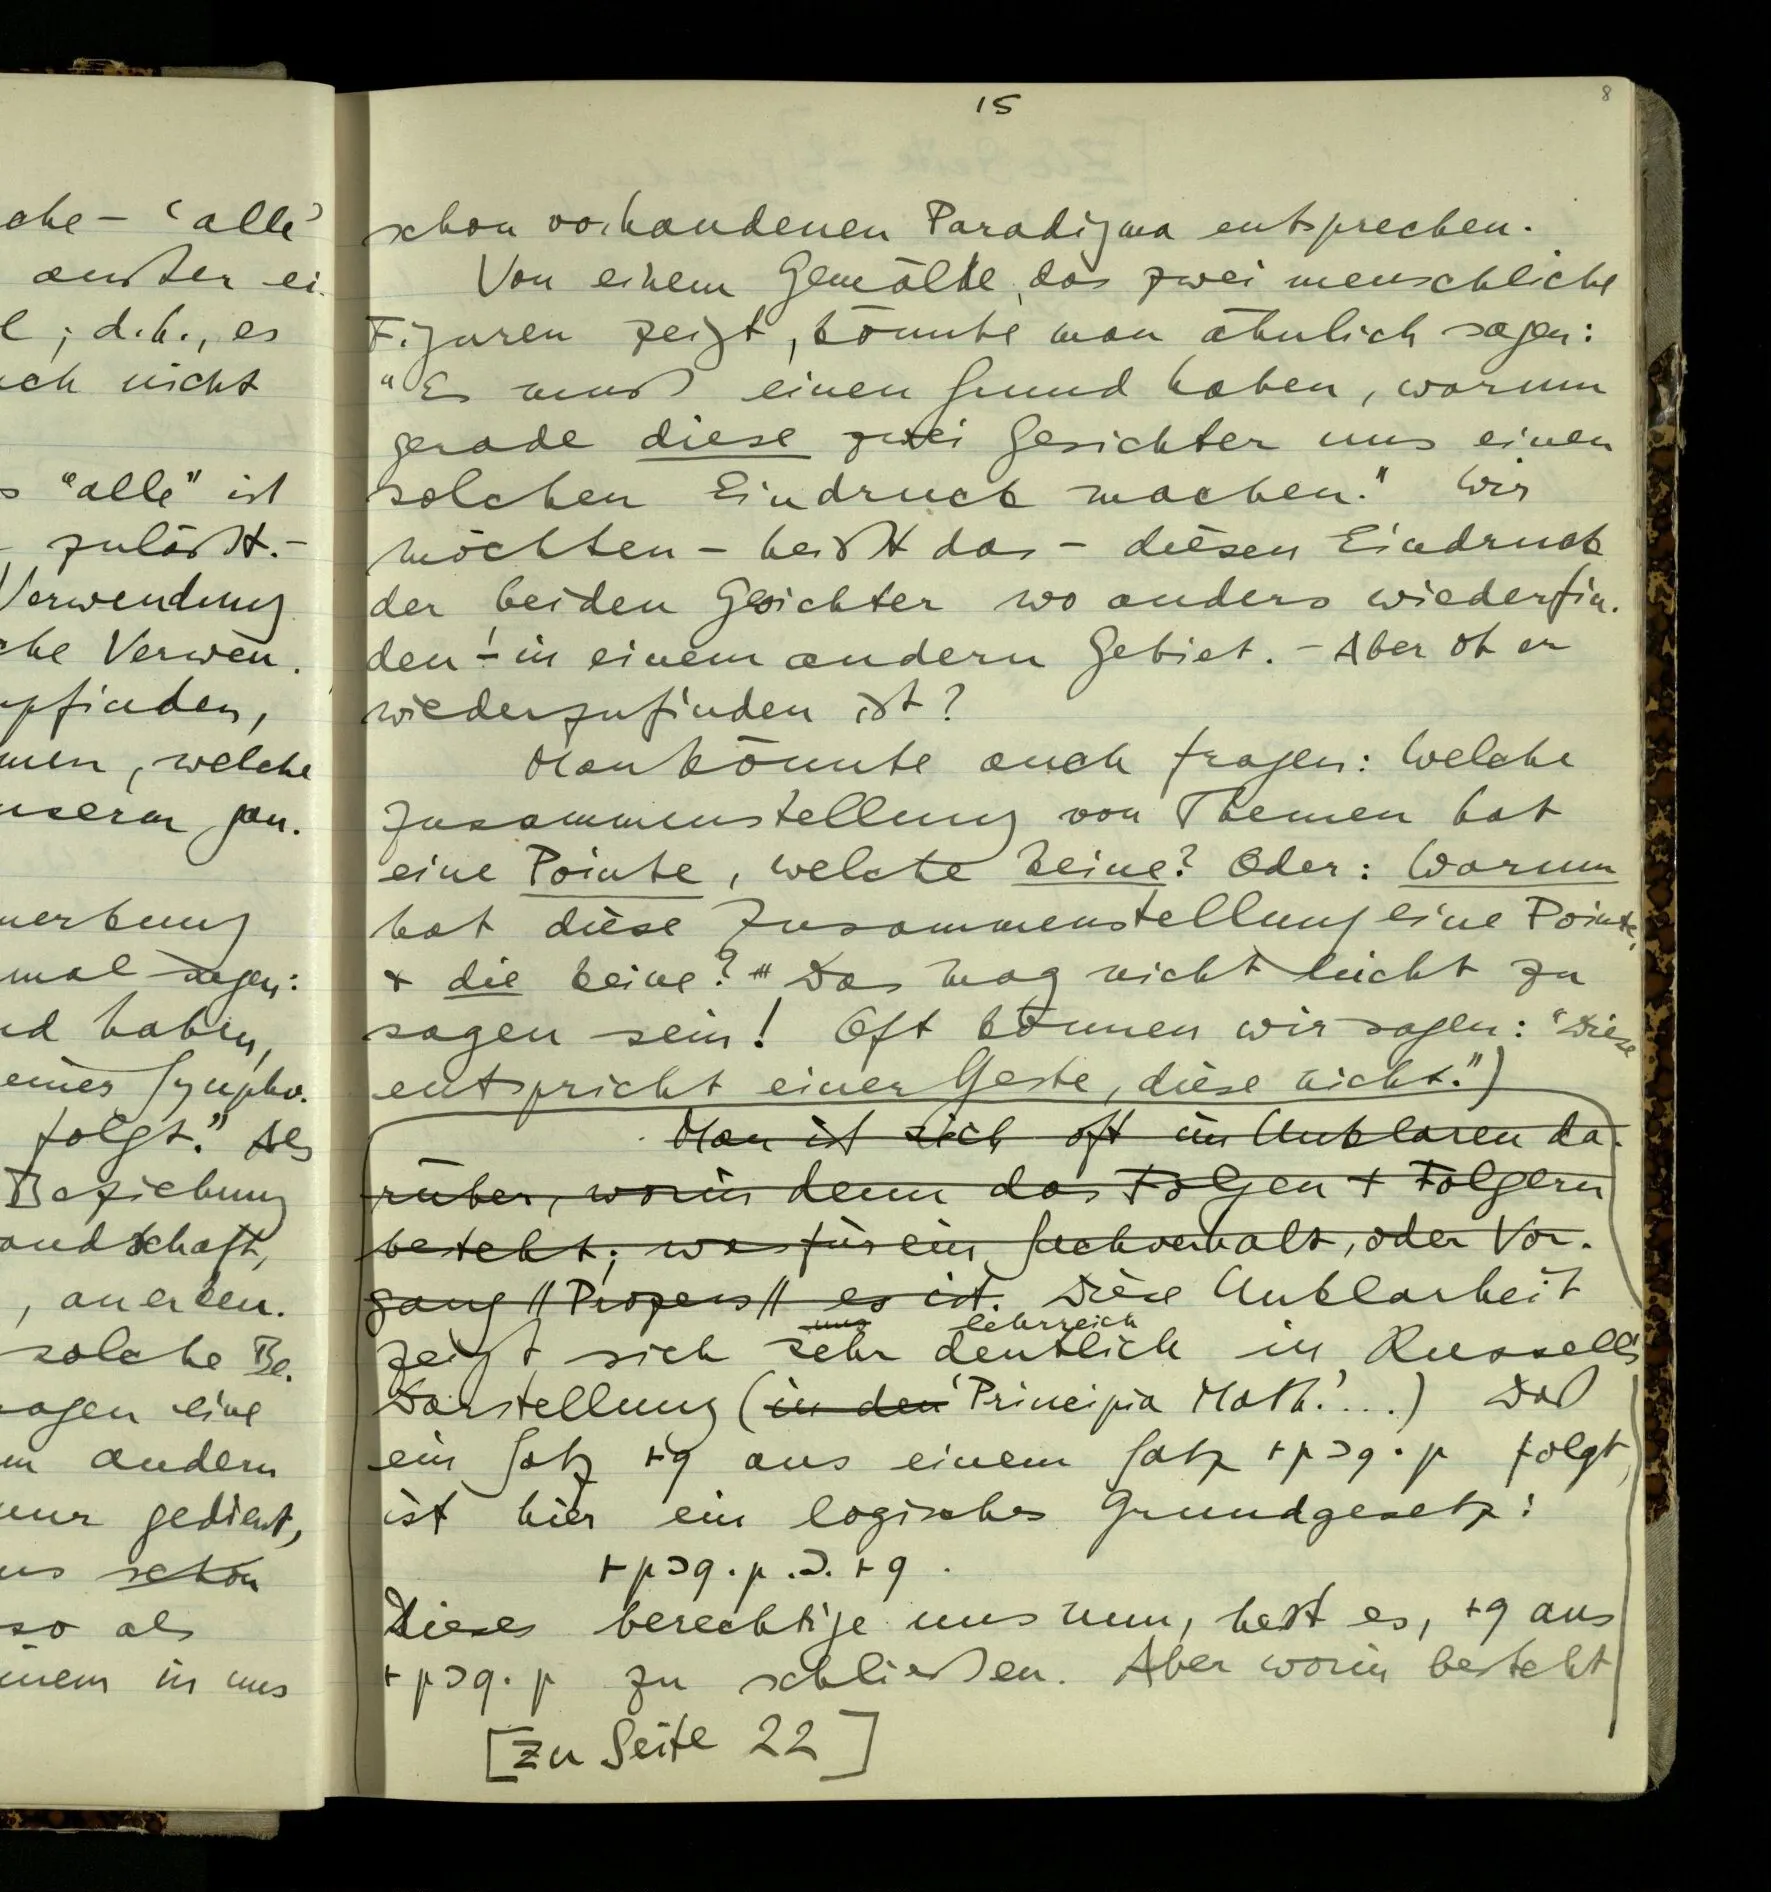 che – ‘alle’
außer ei-
l; d.h., es
ch nicht
s “alle” ist
zuläßt.–
Verwendung
che Verwen-
pfinden,
men, welche
nserm gan-
merkung
mal sagen:
nd haben,
einer Sympho-
folgt.” Als
Beziehung
andschaft,
, anerken-
solche Be-
sagen eine
m andern
nur gedient,
ns schon
so als
inem in uns
15
8
schon vorhandenen Paradigma entsprechen.
Von einem Gemälde, das zwei menschliche
Figuren zeigt, könnte man ähnlich sagen:
“Es muß einen Grund haben, warum
gerade diese zwei Gesichter uns einen
solchen Eindruck machen.” Wir
möchten – heißt das – diesen Eindruck
der beiden Gesichter wo anders wiederfin-
den – in einem andern Gebiet. – Aber ob er
wiederzufinden ist?
Man könnte auch fragen: Welche
Zusammenstellung von Themen hat
eine Pointe, welche keine? Oder: Warum
hat diese Zusammenstellung eine Pointe,
& die keine? Das mag nicht leicht zu
sagen sein! Oft können wir sagen: “Diese
entspricht einer Geste, diese nicht.”)
Man ist sich oft im Unklaren da-
rüber, worin denn das Folgen & Folgern
besteht; was für ein Sachverhalt, oder Vor-
gang //Prozess// es ist. Diese Unklarheit
uns lehrreich
zeigt sich sehr deutlich in Russell's
Darstellung (in den ‘Principia Math.’...) Daß
ein Satz ⊢q aus einem Satz ⊢p⊃q.p folgt,
ist hier ein logisches Grundgesetz:
⊢p⊃q.p.⊃.⊢q.
Dieses berechtige uns nun, heißt es, ⊢q aus
⊢p⊃q.p zu schließen. Aber worin besteht
[Zu Seite 22]